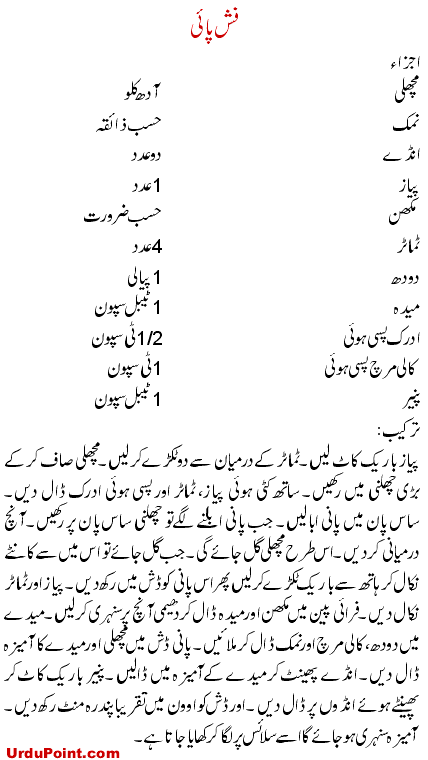 فش پائی
اجزاء
مچھلی آدھ کلو
نمک حسب ذائقہ
انڈے دو عدد
پیاز 1 عدد
مکھن حسب ضرورت
ٹماٹر 4 عدد
دودھ 1 پیالی
میدہ 1 ٹیبل سپون
ادرک پسی ہوئی 1/2 ٹی سپون
کالی مرچ پسی ہوئی 1 ٹی سپون
پنیر 1 ٹیبل سپون
ترکیب:
پیاز باریک کاٹ لیں۔ ٹماٹر کے درمیان سے دو ٹکڑے کر لیں۔ مچھلی صاف کر کے
بڑی چھلنی میں رکھیں۔ ساتھ کٹی ہوئی پیاز، ٹماٹر اور پسی ہوئی ادرک ڈال دیں۔
ساس پان میں پانی ابالیں۔ جب پانی ابلنے لگے تو چھلنی ساس پان پر رکھیں۔ آنچ
درمیانی کر دیں۔ اس طرح مچھلی گل جائے گی۔ جب گل جائے تو اس میں سے کانٹے
نکال کر ہاتھ سے باریک ٹکڑے کر لیں پھر اس پانی کو ڈش میں رکھ دیں۔ پیاز اور ٹماٹر
نکال دیں۔ فرائی پین میں مکھن اور میدہ ڈال کر دھیمی آنچ پر سنہری کر لیں۔ میدے
میں دودھ، کالی مرچ اور نمک ڈال کر ملائیں۔ پانی ڈش میں مچھلی اور میدے کا آمیزہ
ڈال دیں۔ انڈے پھینٹ کر میدے کے آمیزہ میں ڈالیں۔ پنیر باریک کاٹ کر
پھینٹے ہوئے انڈوں پر ڈال دیں۔ اور ڈش کو اوون میں تقریبا پندرہ منٹ رکھ دیں۔
آمیزہ سنہری ہو جائے گا اسے سلائس پر لگا کر کھایا جاتا ہے۔
UrduPoint.com